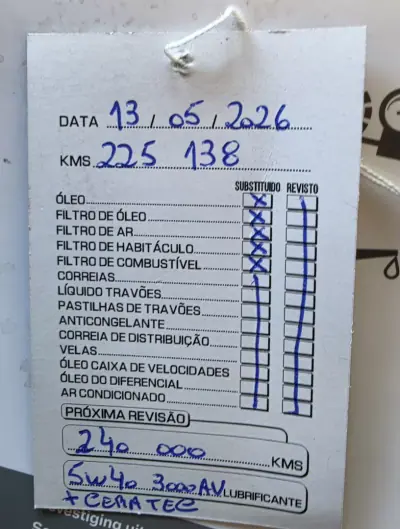 DATA 13 / 05 / 2026
KMS. 225 138
SUBSTITUIDO REVISTO
ÓLEO X
FILTRO DE ÓLEO X
FILTRO DE AR X
FILTRO DE HABITÁCULO X
FILTRO DE COMBUSTÍVEL X
CORREIAS
LÍQUIDO TRAVÕES
PASTILHAS DE TRAVÕES
ANTICONGELANTE
CORREIA DE DISTRIBUIÇÃO
VELAS
ÓLEO CAIXA DE VELOCIDADES
ÓLEO DO DIFERENCIAL
AR CONDICIONADO
PRÓXIMA REVISÃO
240 000 KMS
5W40 3000AV LUBRIFICANTE
+ CERATEC